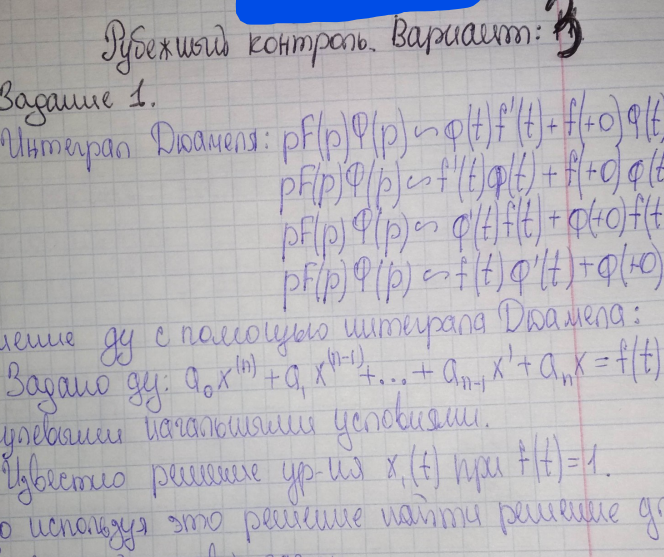 Рубежный контроль. Вариант: 3
Задание 1.
Интеграл Дюамеля: pF(p)Φ(p) ∽ φ(t)f'(t) + f(+0)φ(t
pF(p)Φ(p) ∽ f'(t)φ(t) + f(+0)φ(t
pF(p)Φ(p) ∽ φ'(t)f(t) + φ(+0)f(t
pF(p)Φ(p) ∽ f(t)φ'(t) + φ(+0)
ление ду с помощью интеграла Дюамеля:
Задано ду: a₀x⁽ⁿ⁾ + a₁x⁽ⁿ⁻¹⁾ + ... + aₙ₋₁x' + aₙx = f(t)
улевыми начальными условиями.
Известно решение ур-ия x₁(t) при f(t)=1.
о используя это решение найти решение д